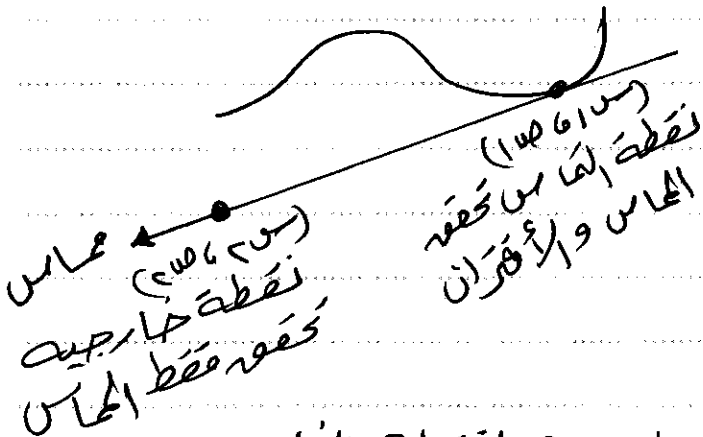 (س١ ، ص١)
نقطة التماس تحقق
المماس والأقتران
مماس
(س٢ ، ص٢)
نقطة خارجيه
تحقق فقط المماس